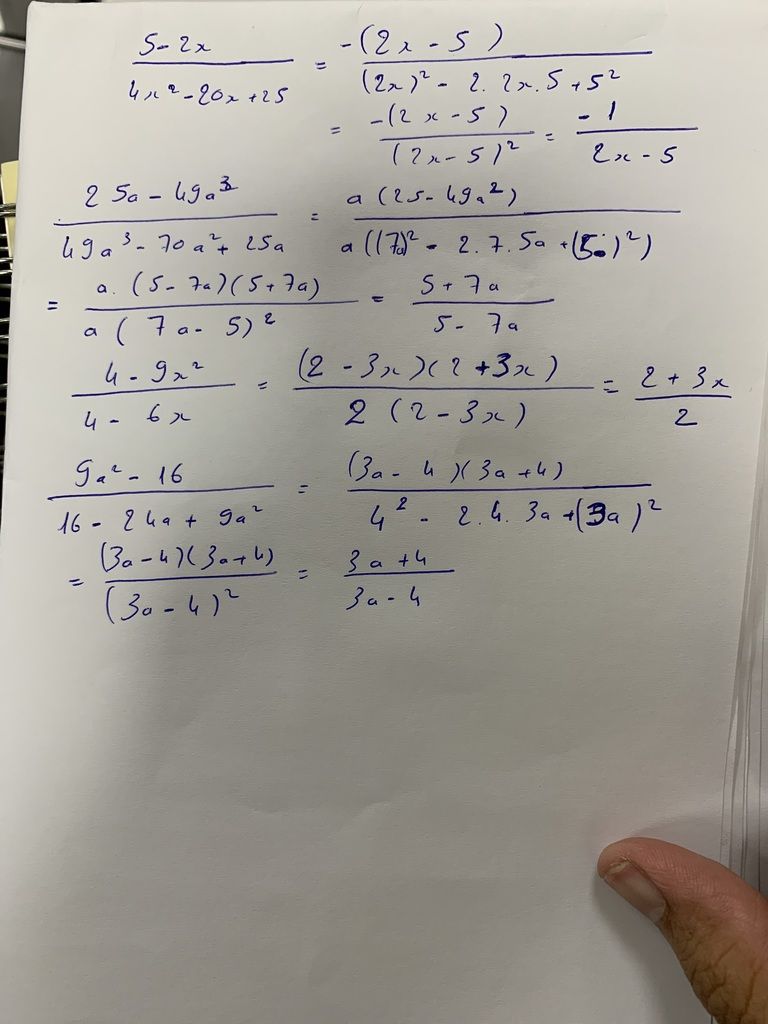 (5 - 2x)/(4x² - 20x + 25) = -(2x - 5)/((2x)² - 2. 2x. 5 + 5²)
= -(2x - 5)/(2x - 5)² = -1/(2x - 5)
(25a - 49a³)/(49a³ - 70a² + 25a) = a(25 - 49a²)/a((7a)² - 2. 7. 5a + (5)²)
= a. (5 - 7a)(5 + 7a)/a(7a - 5)² = (5 + 7a)/(5 - 7a)
(4 - 9x²)/(4 - 6x) = (2 - 3x)(2 + 3x)/2(2 - 3x) = (2 + 3x)/2
(9a² - 16)/(16 - 24a + 9a²) = (3a - 4)(3a + 4)/(4² - 2. 4. 3a + (3a)²)
= (3a - 4)(3a + 4)/(3a - 4)² = (3a + 4)/(3a - 4)